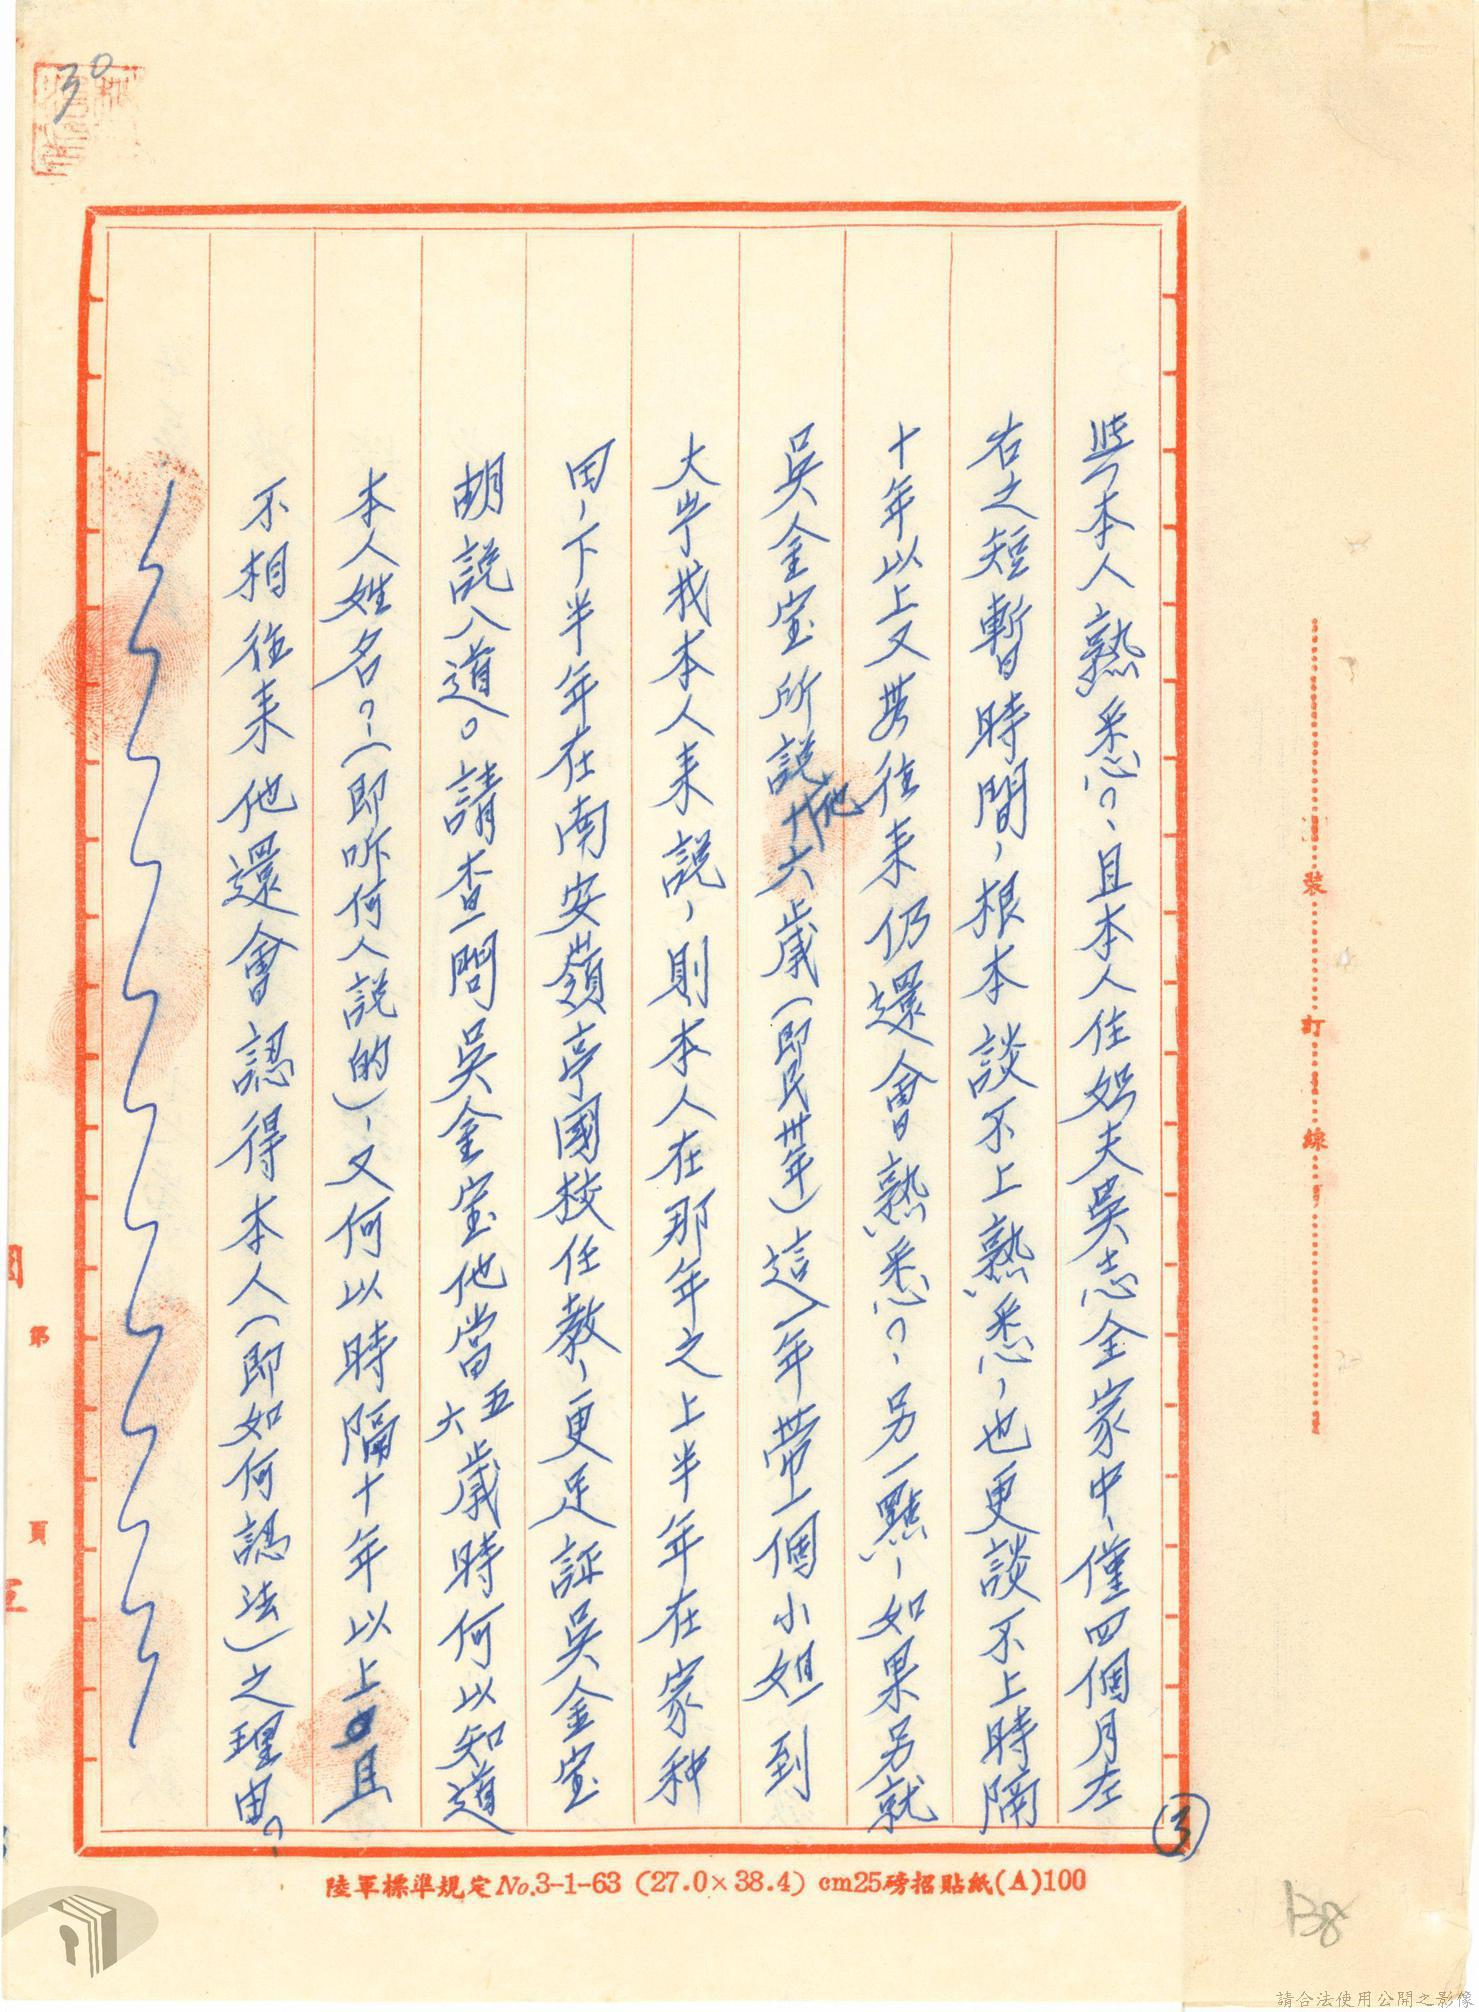 30
與本人熟悉?,且本人住姐夫吳志金家中,僅四個月左
右之短暫時間,根本談不上熟悉,也更談不上時隔
十年以上又無往来仍還會熟悉?,另一點,如果另就
吳金宝所説他六歲(即民卅年)這一年帶一個小姐到
大宇找本人来說,則本人在那年之上半年在家种
田,下半年在南安嶺亭國校任教,更足証吳金宝
胡説八道。請查一問吳金宝他當五六歲時何以知道
本人姓名?(即听何人説的),又何以時隔十年以上且
不相往来他還會認得本人(即如何認法)之理由。
③
裝訂線
第 頁
陸軍標準規定No.3-1-63 (27.0×38.4) cm25磅招貼紙(A)100
138
請合法使用公開之影像